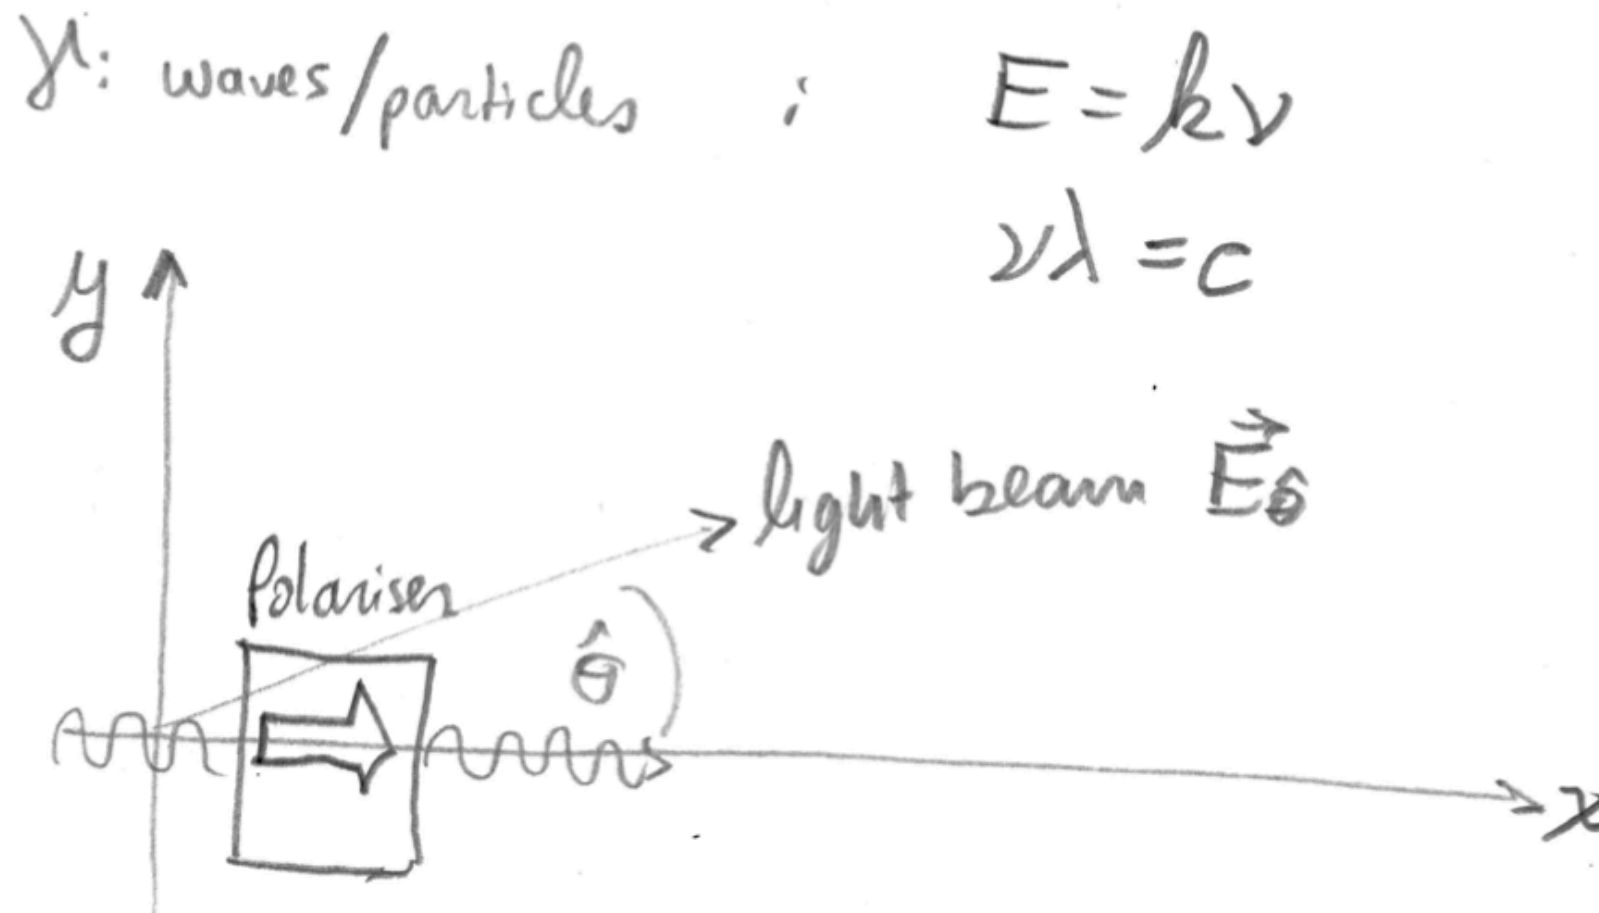 γ: waves/particles ; E = hν
νλ = c
y
light beam E⃗_θ̂
Polariser
θ̂
x